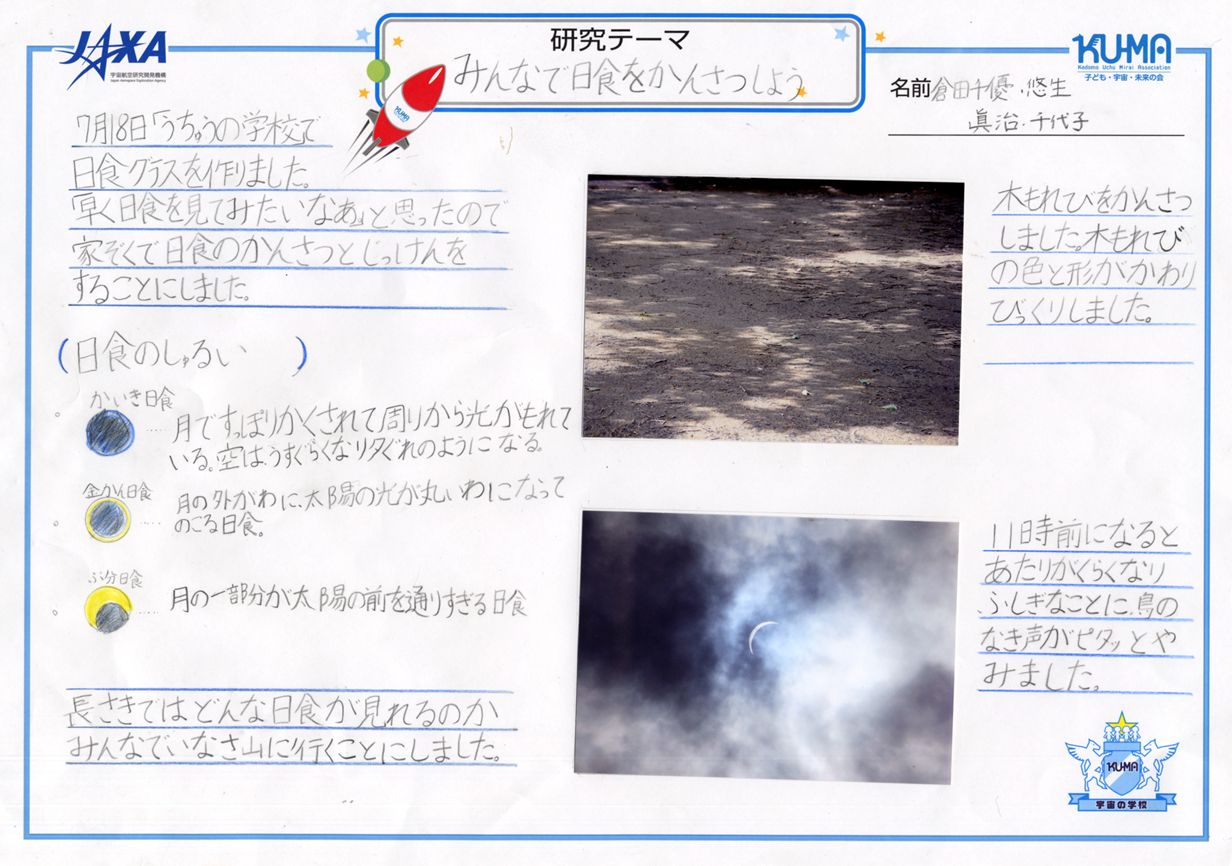 JAXA
宇宙航空研究開発機構
Japan Aerospace Exploration Agency
研究テーマ
みんなで日食をかんさつしよう
KUMA
Kodomo Uchu Mirai Association
子ども・宇宙・未来の会
名前 倉田千優・悠生
眞治・千代子
KUMA
7月18日「うちゅうの学校」で
日食グラスを作りました。
「早く日食を見てみたいなぁ」と思ったので
家ぞくで日食のかんさつとじっけんを
することにしました。
(日食のしゅるい)
かいき日食
月ですっぽりかくされて周りから光がもれて
いる。空は、うすぐらくなり夕ぐれのようになる。
金かん日食
月の外がわに、太陽の光が丸いわになって
のこる日食。
ぶ分日食
月の一部分が太陽の前を通りすぎる日食
長さきではどんな日食が見れるのか
みんなでいなさ山に行くことにしました。
木もれびをかんさつ
しました。木もれび
の色と形がかわり
びっくりしました。
11時前になると
あたりがくらくなり
ふしぎなことに、鳥の
なき声がピタッとや
みました。
KUMA
宇宙の学校